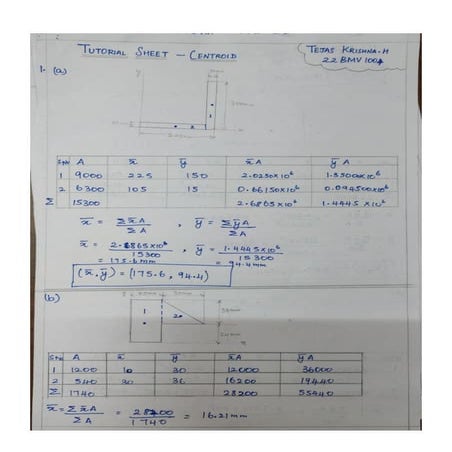 TUTORIAL SHEET - CENTROID
TEJAS KRISHNA.H
22BMV1004
1. (a)
y
SNo A x̄ ȳ x̄A ȳA
1 9000 225 150 2.0250x10⁶ 1.3500x10⁶
2 6300 105 15 0.66150x10⁶ 0.094500x10⁶
Σ 15300 2.6865x10⁶ 1.4445 x10⁶
x̄ = Σx̄A / ΣA , ȳ = ΣȳA / ΣA
x̄ = 2.6865x10⁶ / 15300 , ȳ = 1.4445x10⁶ / 15300
= 175.6mm = 94.4mm
(x̄, ȳ) = (175.6, 94.4)
(b)
1
2
SNo A x̄ ȳ x̄A ȳA
1 1200 10 30 12000 36000
2 540 30 36 16200 19440
Σ 1740 28200 55440
x̄ = Σx̄A / ΣA = 28200 / 1740 = 16.21mm